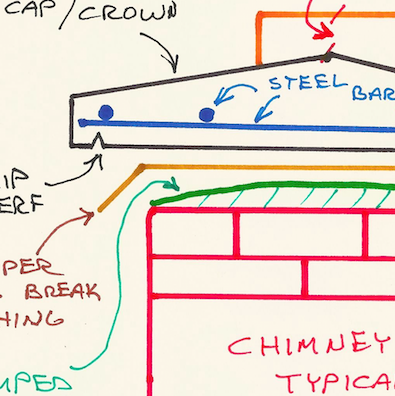 CAP/CROWN
STEEL
BAR
IP
ERF
PER
BREAK
HING
MPED
CHIMNEY
TYPICA